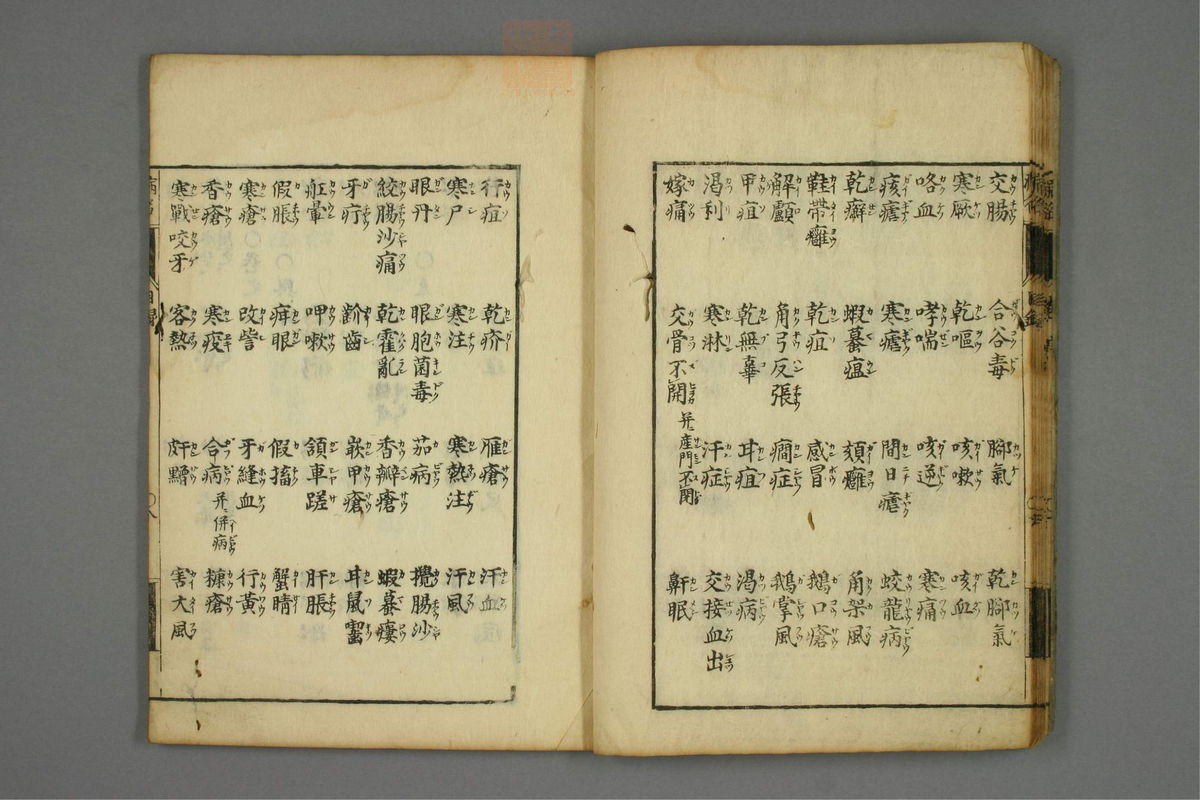 交腸 合谷毒 脚氣 乾脚氣
寒厥 乾嘔 咳嗽 咳血
咯血 哮喘 咳逆 寒痛
痎瘧 寒瘧 間日瘧 蛟龍病
乾癬 蝦蟇瘟 頦癰 角架風
鞋帶癰 乾疽 感冒 鵝口瘡
解顱 角弓反張 癇症 鵝掌風
甲疽 乾無辜 耳疽 渇病
渇利 寒淋 汗症 交接血出
嫁痛 交骨不開 并産門不閉 鼾眠
行疽 乾疥 雁瘡 汗血
寒尸 寒注 寒熱注 汗風
眼丹 眼胞菌毒 茄病 攪腸沙
絞腸沙痛 乾霍亂 香瓣瘡 蝦蟇瘻
牙疔 齘齒 嵌甲瘡 耳鼠囓
舡暈 呷嗽 頷車蹉 肝脹
假脹 㾕眼 假搐 蟹睛
寒瘡 改訾 牙縫血 行黃
香瘡 寒疫 合病 并併病 糠瘡
寒戰咬牙 客熱 皯䵳 害大風